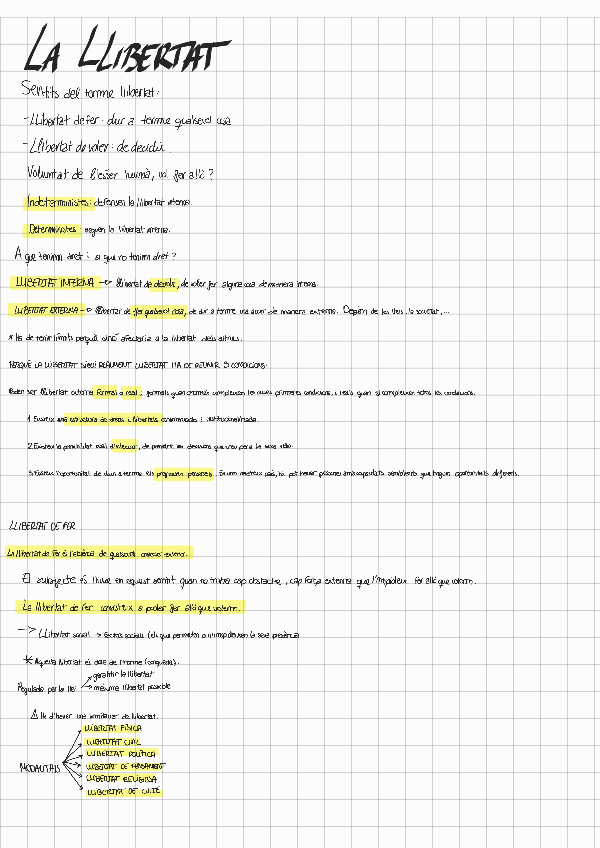 LA LLIBERTAT
Sentits del terme llibertat:
-Llibertat de fer: dur a terme qualsevol cosa
-Llibertat de voler: de decidir.
Voluntat de l'ésser humà, vol fer allò?
Indeterministes: defensen la llibertat interna.
Deterministes: neguen la llibertat interna.
A que tenim dret i a que no tenim dret?
LLIBERTAT INTERNA -> llibertat de decidir, de voler fer alguna cosa de manera interna.
LLIBERTAT EXTERNA -> llibertat de fer qualsevol cosa, de dur a terme una acció de manera externa. Depèn de les lleis, la societat,...
* Ha de tenir límits perquè sinó afectaria a la llibertat dels altres.
PERQUÈ LA LLIBERTAT SIGUI REALMENT LLIBERTAT HA DE REUNIR 3 CONDICIONS:
Poden ser llibertat autònia formal o real; formals quan només compleixen les dues primeres condicions, i reals quan si compleixen totes les condicions.
1. Existeix una estructura de drets i llibertats
2. Existeix la possibilitat real d'elecció, de prendre les decisions que creu per a la seva vida.
3. Existeix l'oportunitat de dur a terme els projectes personals. En un mateix país, hi pot haver persones amb capacitats semblants que tinguin oportunitats diferents.
LLIBERTAT DE FER
La llibertat de fer és l'absència de qualsevol coacció externa.
El subjecte és lliure en aquest sentit quan no troba cap obstacle, cap força externa que l'impideix fer allò que volem.
La llibertat de fer consisteix a poder fer allò que volem.
-> Llibertat social -> Factors socials (els que permeten o impideixen la seva presència
* Aquesta llibertat és clau de l'home (conquesta).
Regulada per la llei
garantir la llibertat
màxima llibertat possible
Ha d'haver una
LLIBERTAT FÍSICA
LLIBERTAT CIVIL
LLIBERTAT POLÍTICA
MODALITATS
LLIBERTAT DE PENSAMENT
LLIBERTAT RELIGIOSA
LLIBERTAT DE CULTE